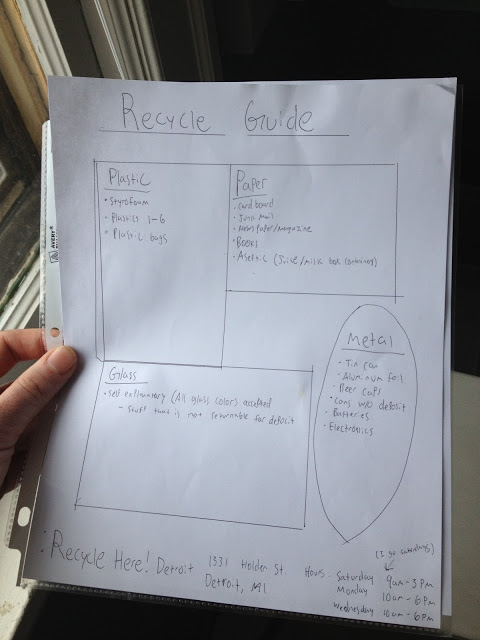 Recycle Guide
Plastic
• Styrofoam
• Plastics 1-6
• Plastic bags
Paper
• Cardboard
• Junk mail
• Newspaper/magazine
• Books
• Aseptic (Juice/milk box containers)
Glass
• Self explanatory (All glass colors accepted
- stuff that is not returnable for deposit
Metal
• Tin can
• Aluminum foil
• Beer caps
• Cans w/o deposit
• Batteries
• Electronics
: Recycle Here! Detroit
1331 Holden St.
Detroit, MI
(I go saturdays)
Hours: Saturday 9am-3pm
Monday 10am-6pm
Wednesday 10am-6pm
AVERY